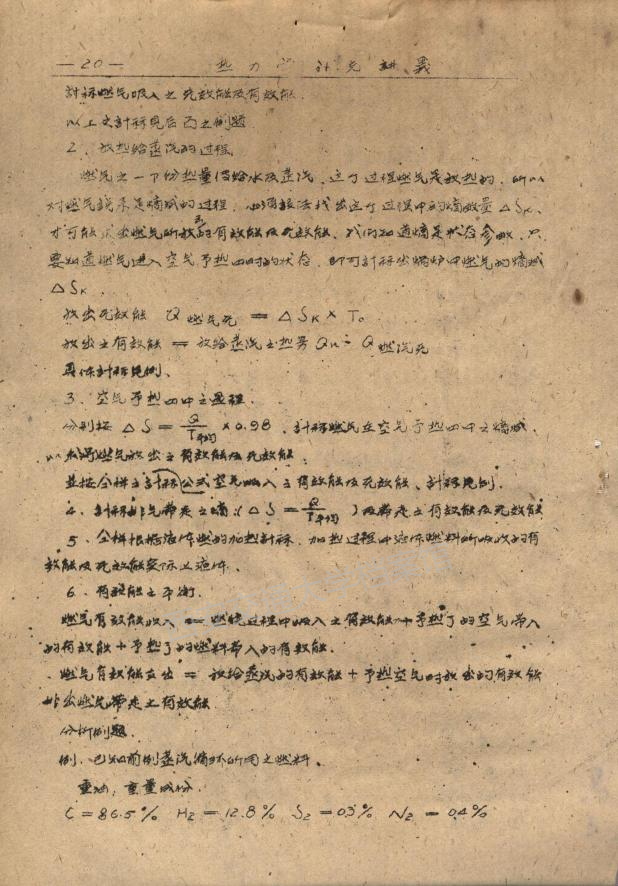 —20— 热力学补充讲义
计标燃气吸入之无效能及有效能.
以上之计标见后面之例题
2、放热给蒸汽的过程.
燃气之一下份热量传给水及蒸汽、这个过程燃气是放热的、所以
对燃气说来是熵减的过程、必须设法找出这个过程中的熵数量 ΔSK、
才可能求出燃气所放出的有效能及无效能、我们知道熵是状态参数、只
要知道燃气进入空气予热四时的状态、即可计标出锅炉中燃气的熵减
ΔSK.
放出无效能 Q燃气无 = ΔSK × T₀
放出之有效能 = 放给蒸汽之热号 Qn - Q燃汽无
具体计标见例、
3、空气予热四中之过程.
分别按 ΔS = Q/T平均 ×0.98、计标燃气在空气予热四中之熵减、
以求得燃气放出之有效能及无效能;
并按仝样之计标公式空气吸入之有效能及无效能、计标见例.
4、计标排气带走之熵:(ΔS = Q/T平均)及带走之有效能及无效能
5、仝样根据液体燃的加热计标、加热过程中液体燃料所吸收的有
效能及无效能实际上液体.
6、有效能之平衡.
燃气有效能收入 = 燃烧过程中吸入之有效能+予热了的空气带入
的有效能+予热了的燃料带入的有效能.
燃气有效能支出 = 放给蒸汽的有效能+予热空气时放出的有效能
排出燃气带走之有效能
分析例题.
例、已知前例蒸汽循环所用之燃料.
重油;重量成份.
C=86.5% H₂=12.8% S₂=0.3% N₂=0.4%